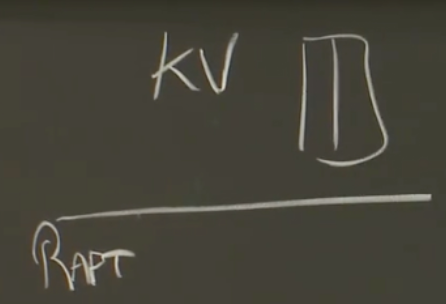 KV
RAPT